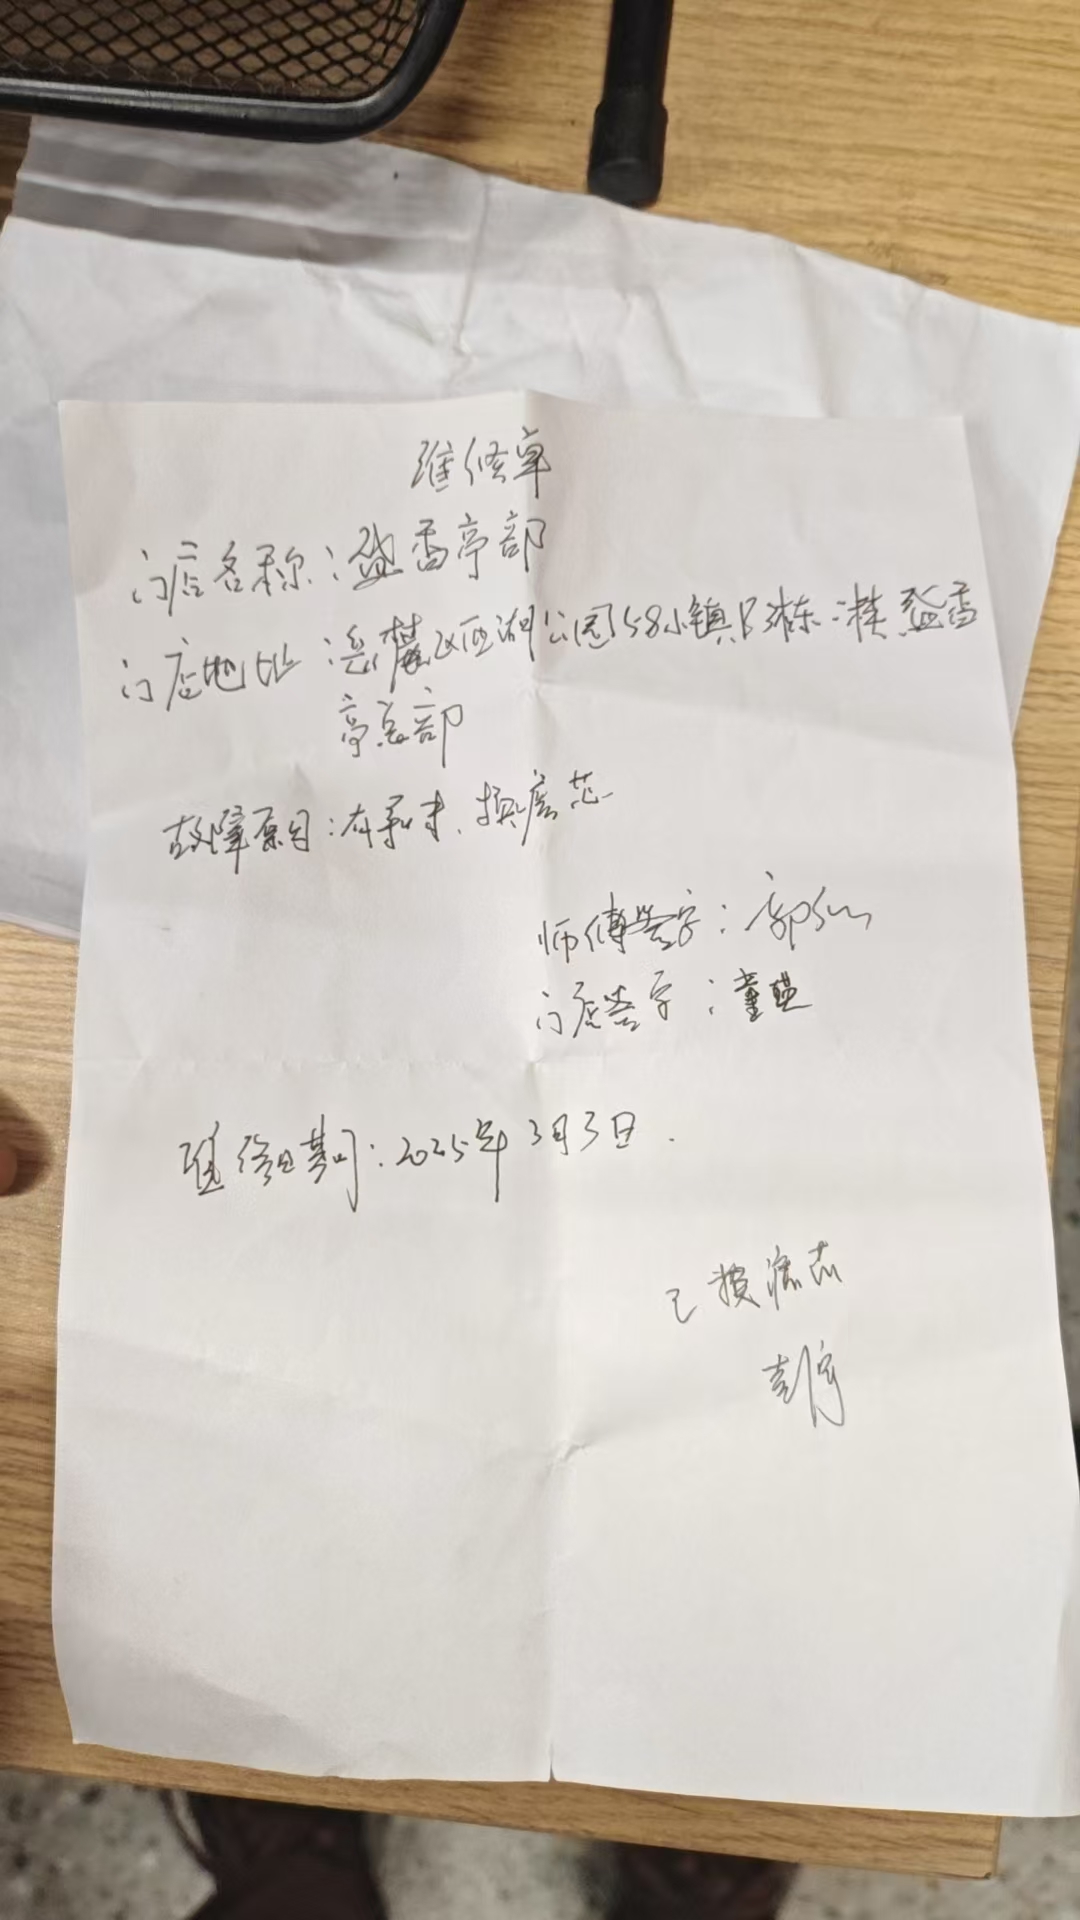 维修单
门店名称:盛香亭部
门店地址:岳麓区西湖公园58小镇B3栋二楼盛香
亭总部
故障原因:有异味、换滤芯
师傅签字:郭
门店签字:董
维修日期:2025年3月3日.
已换滤芯
彭宇